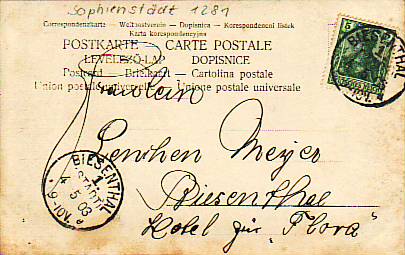 Sophienstädt 1281
Correspondenzkarte — Weltpostverein — Dopisnica — Korespondenční lístek
Karta korespondencyjna
POSTKARTE CARTE POSTALE
LEVELEZŐ-LAP DOPISNICE
Postcard — Briefkaart — Cartolina postale
Union postale universelle Unione postale universale
5
BIESENTHAL
10V.
Fräulein
Lenchen Meyer
Biesenthal
Hotel zur "Flora"
BIESENTHAL
1
(STADT)
4 5 03
9-10V.